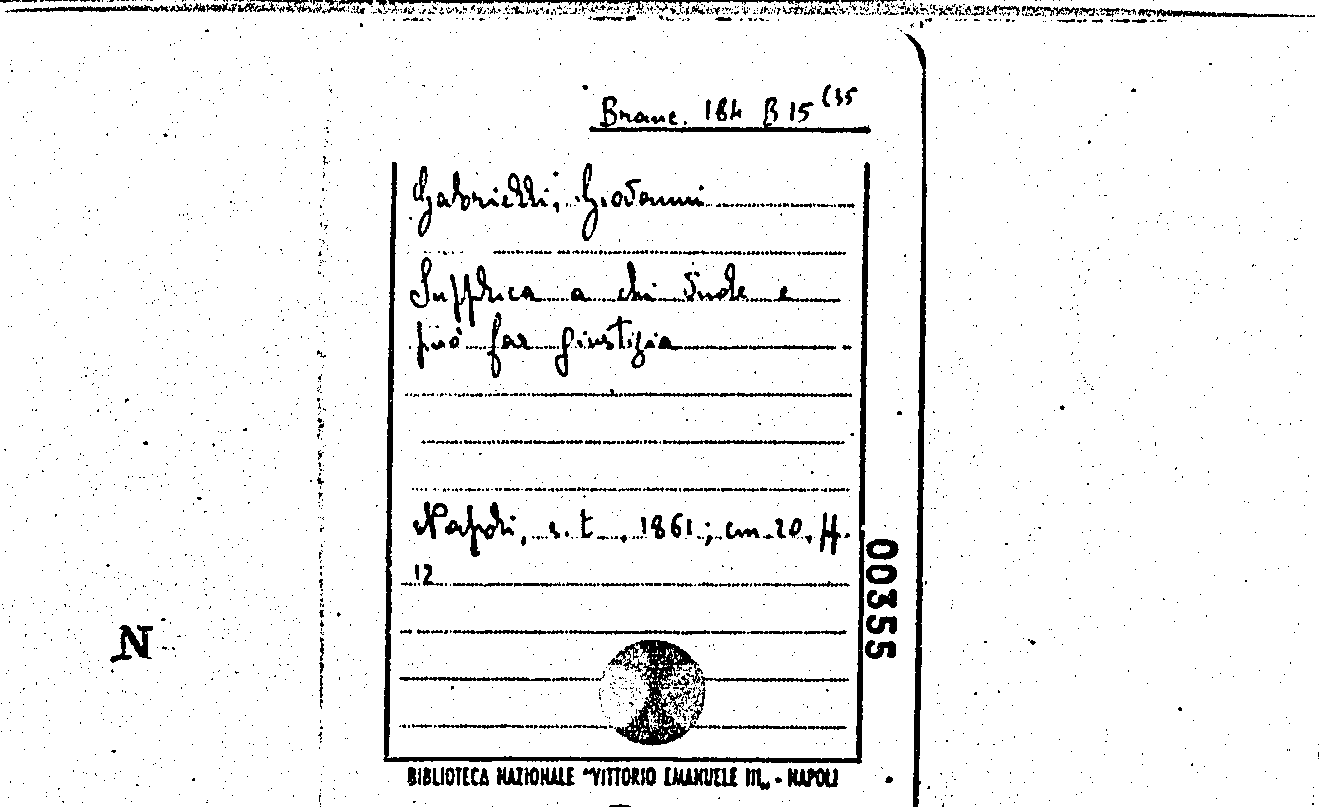 Branc. 184 B 15 (35
Gabrielli, Giovanni
Supplica a chi vuole e
può far giustizia
Napoli, s. t., 1861; cm. 20, ff.
12
00355
N
BIBLIOTECA NAZIONALE "VITTORIO EMANUELE III„ - NAPOLI